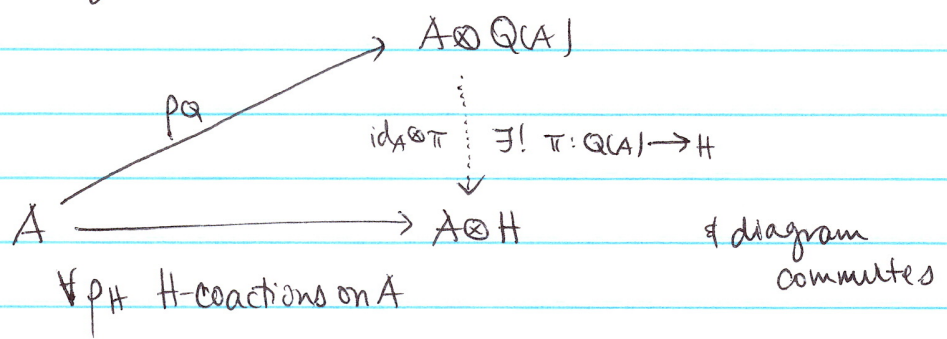 A⊗Q(A)
ρQ
id_A⊗π ∃! π: Q(A)→H
A → A⊗H & diagram
commutes
∀ρ_H H-coactions on A